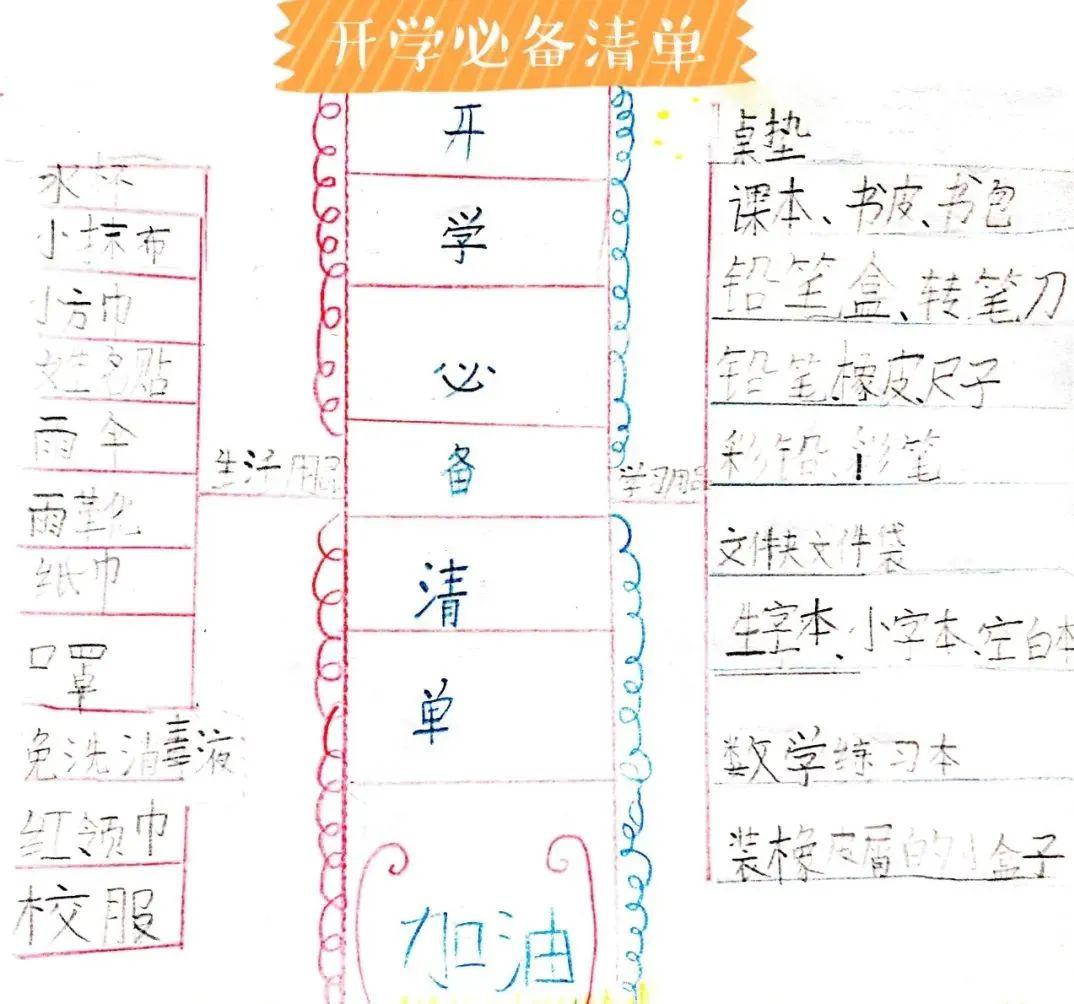 开学必备清单
开
学
必
备
清
单
加油
生活用品
水杯
小抹布
小方巾
姓名贴
雨伞
雨靴
纸巾
口罩
免洗消毒液
红领巾
校服
学习用品
桌垫
课本、书皮、书包
铅笔盒、转笔刀
铅笔、橡皮、尺子
彩铅、彩笔
文件夹文件袋
生字本、小字本、空白本
数学练习本
装橡皮屑的小盒子